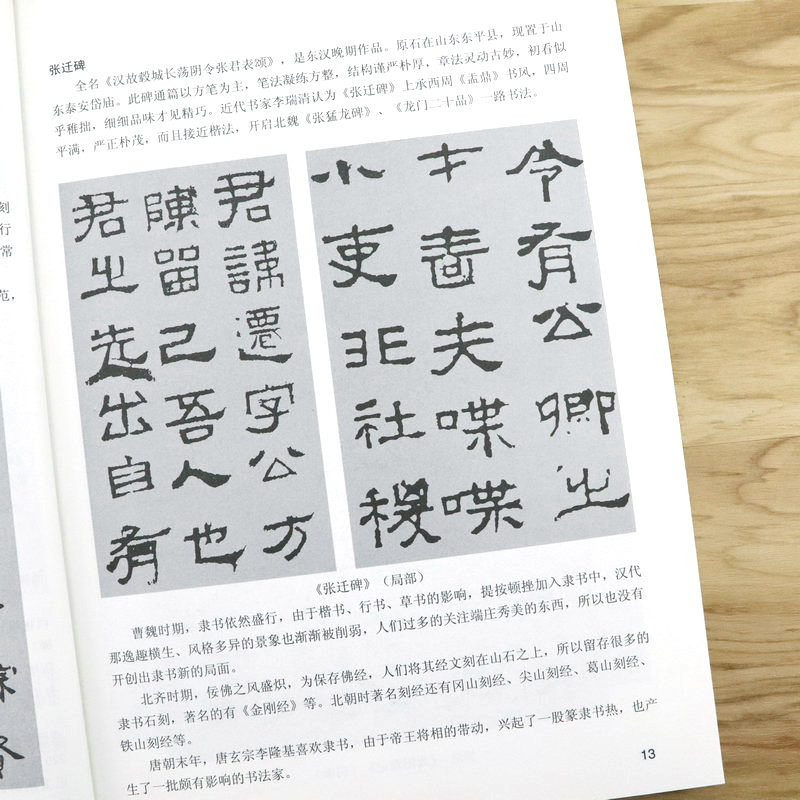 刻
行
常
范，
张迁碑
全名《汉故穀城长荡阴令张君表颂》，是东汉晚期作品。原石在山东东平县，现置于山
东泰安岱庙。此碑通篇以方笔为主，笔法凝练方整，结构谨严朴厚，章法灵动古妙，初看似
乎稚拙，细细品味才见精巧。近代书家李瑞清认为《张迁碑》上承西周《盂鼎》书风，四周
平满，严正朴茂，而且接近楷法，开启北魏《张猛龙碑》、《龙门二十品》一路书法。
君諱遷字公方
陳留己吾人也
君之先出自有
令有公卿之
才嗇夫喋喋
小吏非社稷
《张迁碑》（局部）
曹魏时期，隶书依然盛行，由于楷书、行书、草书的影响，提按顿挫加入隶书中，汉代
那逸趣横生、风格多异的景象也渐渐被削弱，人们过多的关注端庄秀美的东西，所以也没有
开创出隶书新的局面。
北齐时期，佞佛之风盛炽，为保存佛经，人们将其经文刻在山石之上，所以留存很多的
隶书石刻，著名的有《金刚经》等。北朝时著名刻经还有冈山刻经、尖山刻经、葛山刻经、
铁山刻经等。
唐朝末年，唐玄宗李隆基喜欢隶书，由于帝王将相的带动，兴起了一股篆隶书热，也产
生了一批颇有影响的书法家。
13